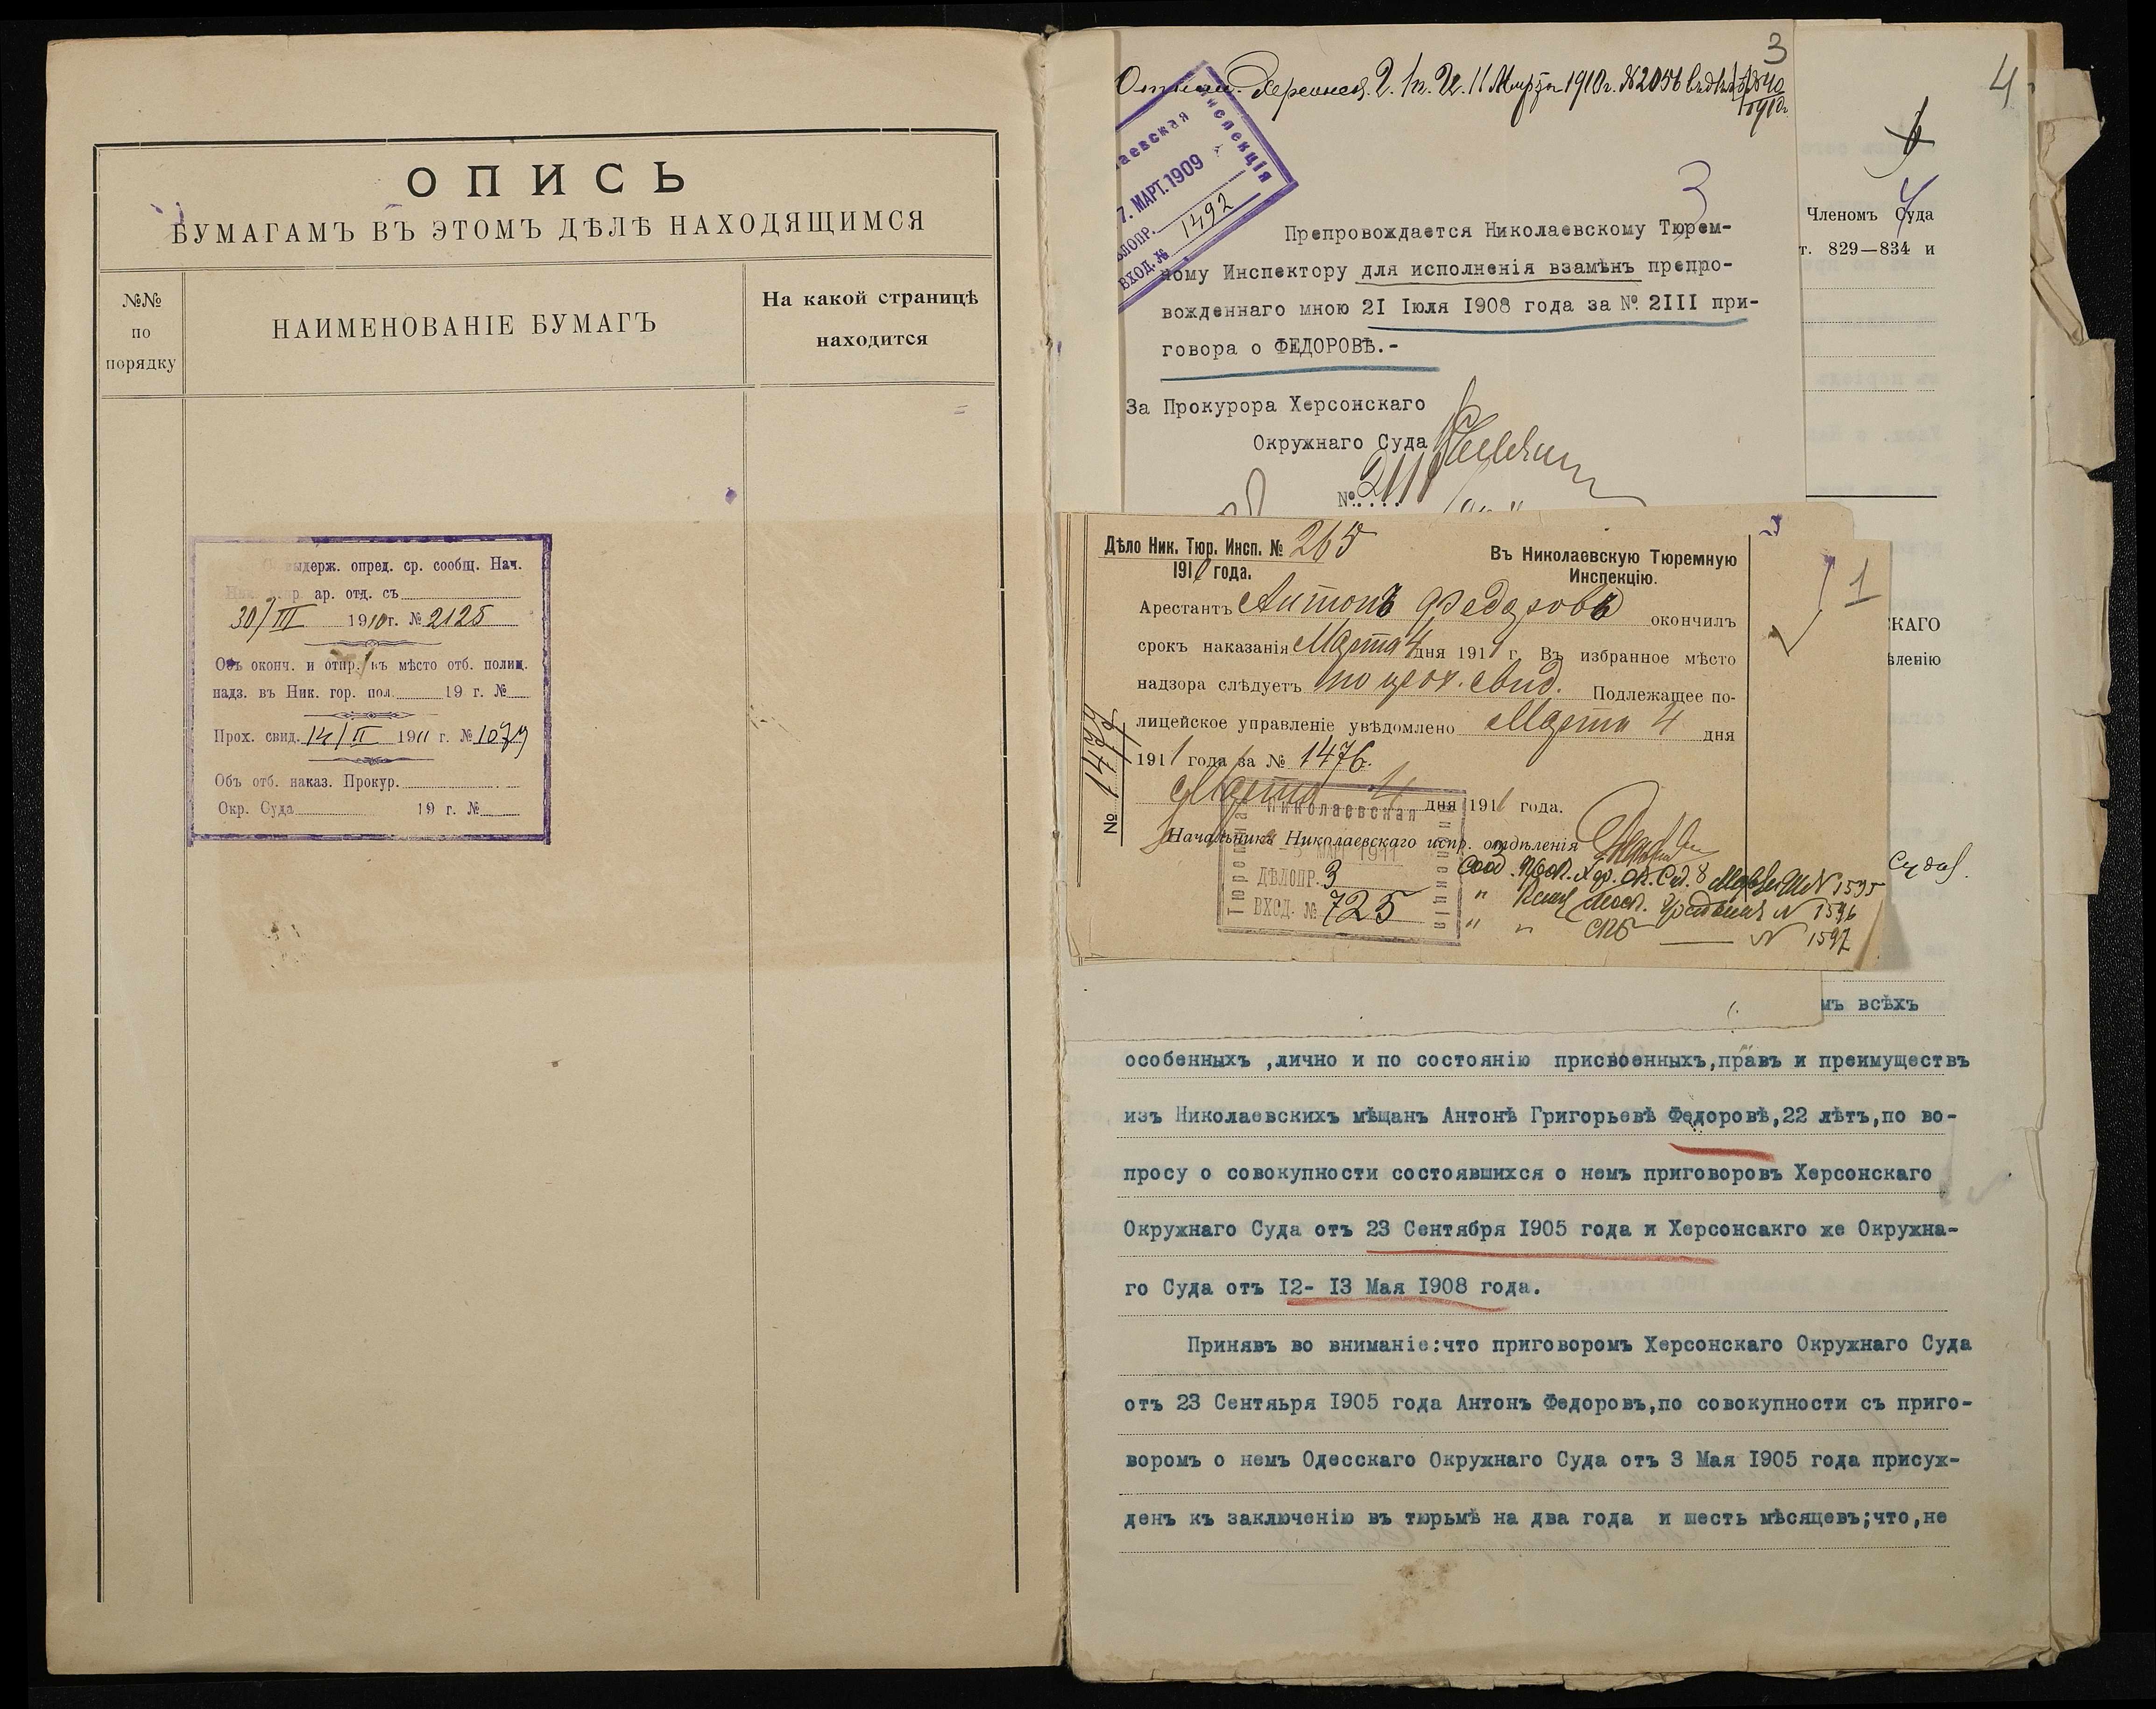 ОПИСЬ
БУМАГАМЪ ВЪ ЭТОМЪ ДѢЛѢ НАХОДЯЩИМСЯ
№№
по
порядку
НАИМЕНОВАНІЕ БУМАГЪ
На какой страницѣ
находится
выдерж. опред. ср. сообщ. Нач.
ар. отд. съ
30/III 1910г. № 2125
Объ оконч. и отпр. въ мѣсто отб. полиц.
надз. въ Ник. гор. пол. 19 г. №
Прох. свид. 14/II 1911 г. № 1079
Объ отб. наказ. Прокур.
Окр. Суда 19 г. №
3
11 Марта 1910г. № 2056
1910г.
аевская
Инспекція
7. МАРТ. 1909
ДѢЛОПР.
ВХОД. № 1492
3
Препровождается Николаевскому Тюрем-
ному Инспектору для исполненія взамѣнъ препро-
вожденнаго мною 2I Іюля I908 года за № 2III при-
говора о ФЕДОРОВѢ.-
За Прокурора Херсонскаго
Окружнаго Суда
№
4
4
Членомъ Суда
т. 829—834 и
Дѣло Ник. Тюр. Инсп. № 265
191 года.
Въ Николаевскую Тюремную
Инспекцію.
1
Арестантъ Антонъ Федоровъ окончилъ
срокъ наказанія Марта 4 дня 1911 г. Въ избранное мѣсто
надзора слѣдуетъ по прох. свид. Подлежащее по-
лицейское управленіе увѣдомлено Марта 4 дня
1911 года за № 1476.
Марта 4 дня 1911 года.
№ 1477
Начальникъ Николаевскаго испр. отдѣленія
Николаевская
Тюремная
Инспекція
1911
ДѢЛОПР. 3
ВХОД. № 725
8 Марта № 1595
№ 1596
СПБ № 1597
СКАГО
ѣленію
Суда.
мъ всѣхъ
особенныхъ ,лично и по состоянію присвоенныхъ,правъ и преимуществъ
изъ Николаевскихъ мѣщанъ Антонѣ Григорьевѣ Федоровѣ,22 лѣтъ,по во-
просу о совокупности состоявшихся о немъ приговоровъ Херсонскаго
Окружнаго Суда отъ 23 Сентября I905 года и Херсонсакго же Окружна-
го Суда отъ I2- I3 Мая I908 года.
Принявъ во вниманіе:что приговоромъ Херсонскаго Окружнаго Суда
отъ 23 Сентяьря I905 года Антонъ Федоровъ,по совокупности съ приго-
воромъ о немъ Одесскаго Окружнаго Суда отъ 3 Мая I905 года присуж-
денъ къ заключенію въ тюрьмѣ на два года и шесть мѣсяцевъ;что,не